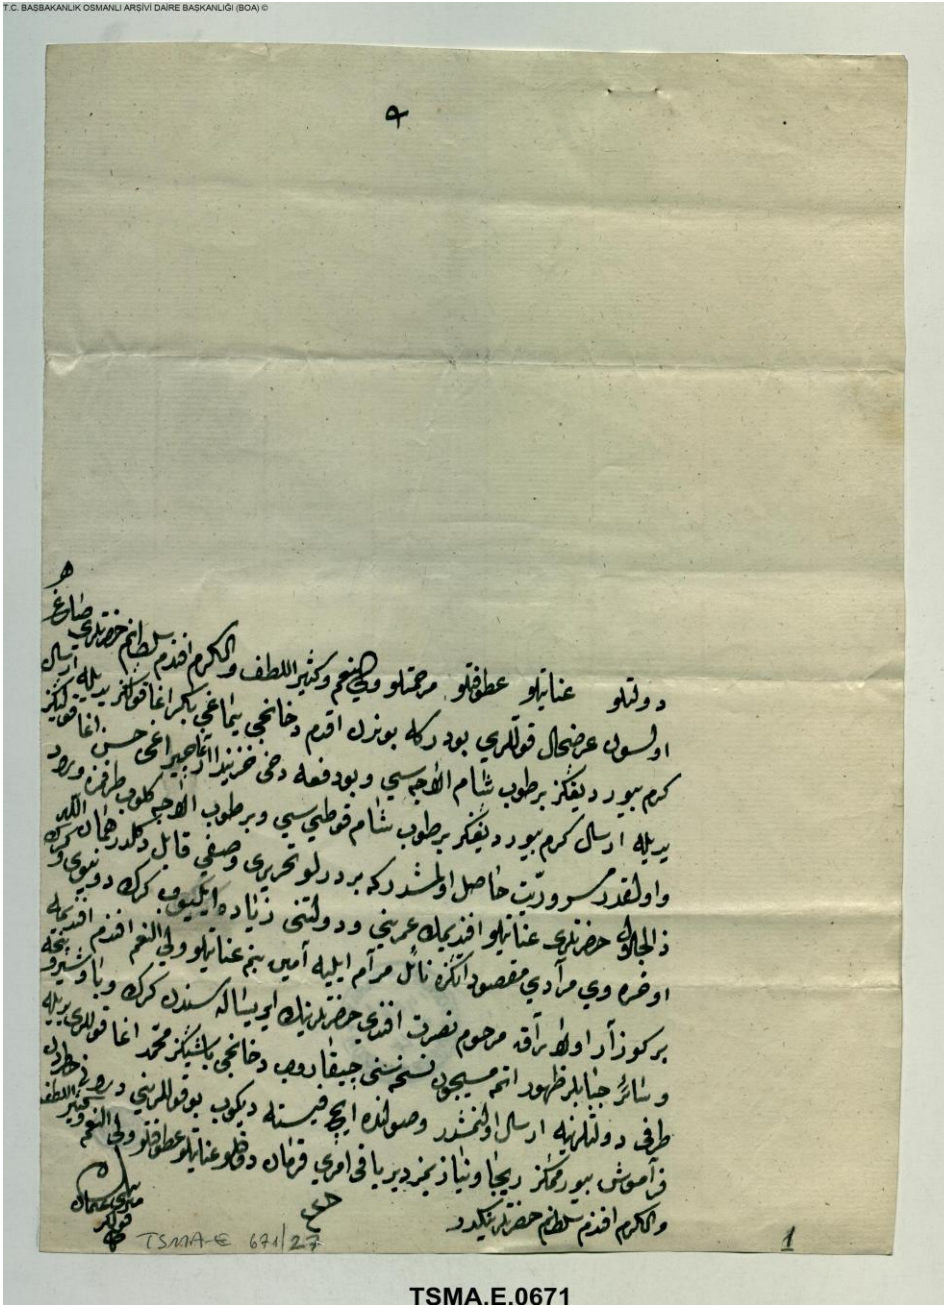 T.C. BAŞBAKANLIK OSMANLI ARŞİVİ DAİRE BAŞKANLIĞI (BOA) ©
هو
دولتلو عنايتلو عطوفتلو مرحمتلو ولي النعم وكثير اللطف والكرم افندم سلطانم حضرتلري صاغ
اولسون عرضحال قوللري بودركه بوندن اقدم دخانجي يماغي بكر اغا قولكز يديله ارسال
كرم بيورديغكز برطوب شام الاجه سي وبودفعه دخي خزينه دار اغا چراغي حسن اغا قولكز
يديله ارسال كرم بيورديغكز برطوب شام قوطني سي وبرطوب الاجه كلوب طرفمزه ورود
واولقدر مسروريت حاصل اولمشدركه بر درلو تحريري وصفي قابل دكلدر همان الله
ذالجلال حضرتلري عنايتلو افنديمك عمريني ودولتني زياده ايليوب كرك دونيوي وكرك
اوخروي مرادي مقصودلريكزه نائل مرام ايليه آمين بنم عنايتلو ولي النعم افندم
بركوزار اولارق مرحوم نصرت افندي حضرتلرينك رساله سندن كرك وبا وشيرو پنجه
وسائر جنابلر ظهور اتمه مسيچون نسخه سني چيقاروب دخانجي باشيكز محمد اغا قوللري يديله
طرفي دولتلرينه ارسال اولنمشدر وصولنده ايچ فيسته ديكوب بو قوللريني درون خاطردن
فراموش بيورمكز رجا ونياز يمزدير باقي امر فرمان دولتلو عنايتلو عطوفتلو ولي النعم وكثير اللطف
والكرم افندم سلطانم حضرتلرينكدر
عثمان
قولكز
TSMA-E 671/27
1
TSMA.E.0671